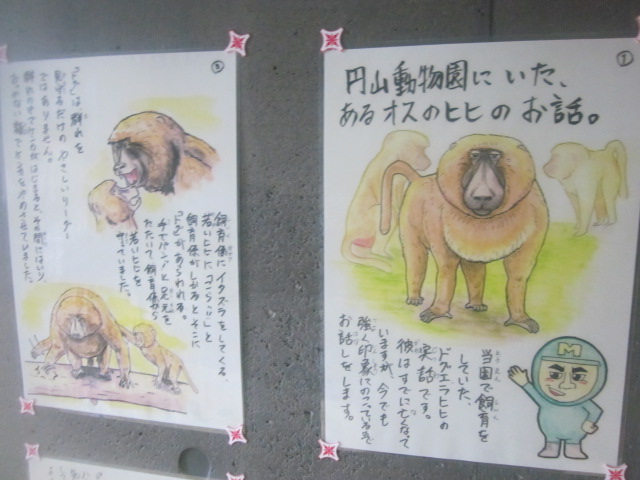 ①
円山動物園にいた、
あるオスのヒヒのお話。
当園で飼育を
していた、
ドグエラヒヒの
実話です。
彼はすでに亡くなって
いますが、今でも
強く印象にのこっている
お話しをします。
M
③
は、群れを
だけの やさしいリーダー
ではありません。
群れの中でケンカがはじまると、その間にはいり
ケンカをやめさせていました。
飼育係に イタズラをしてくる、
若いヒヒに、「コラッ!!」と
飼育係がしかると そこに
があらわれる。
手でパン!!と足元を
たたいて、飼育係から
若いヒヒを
守っていました。